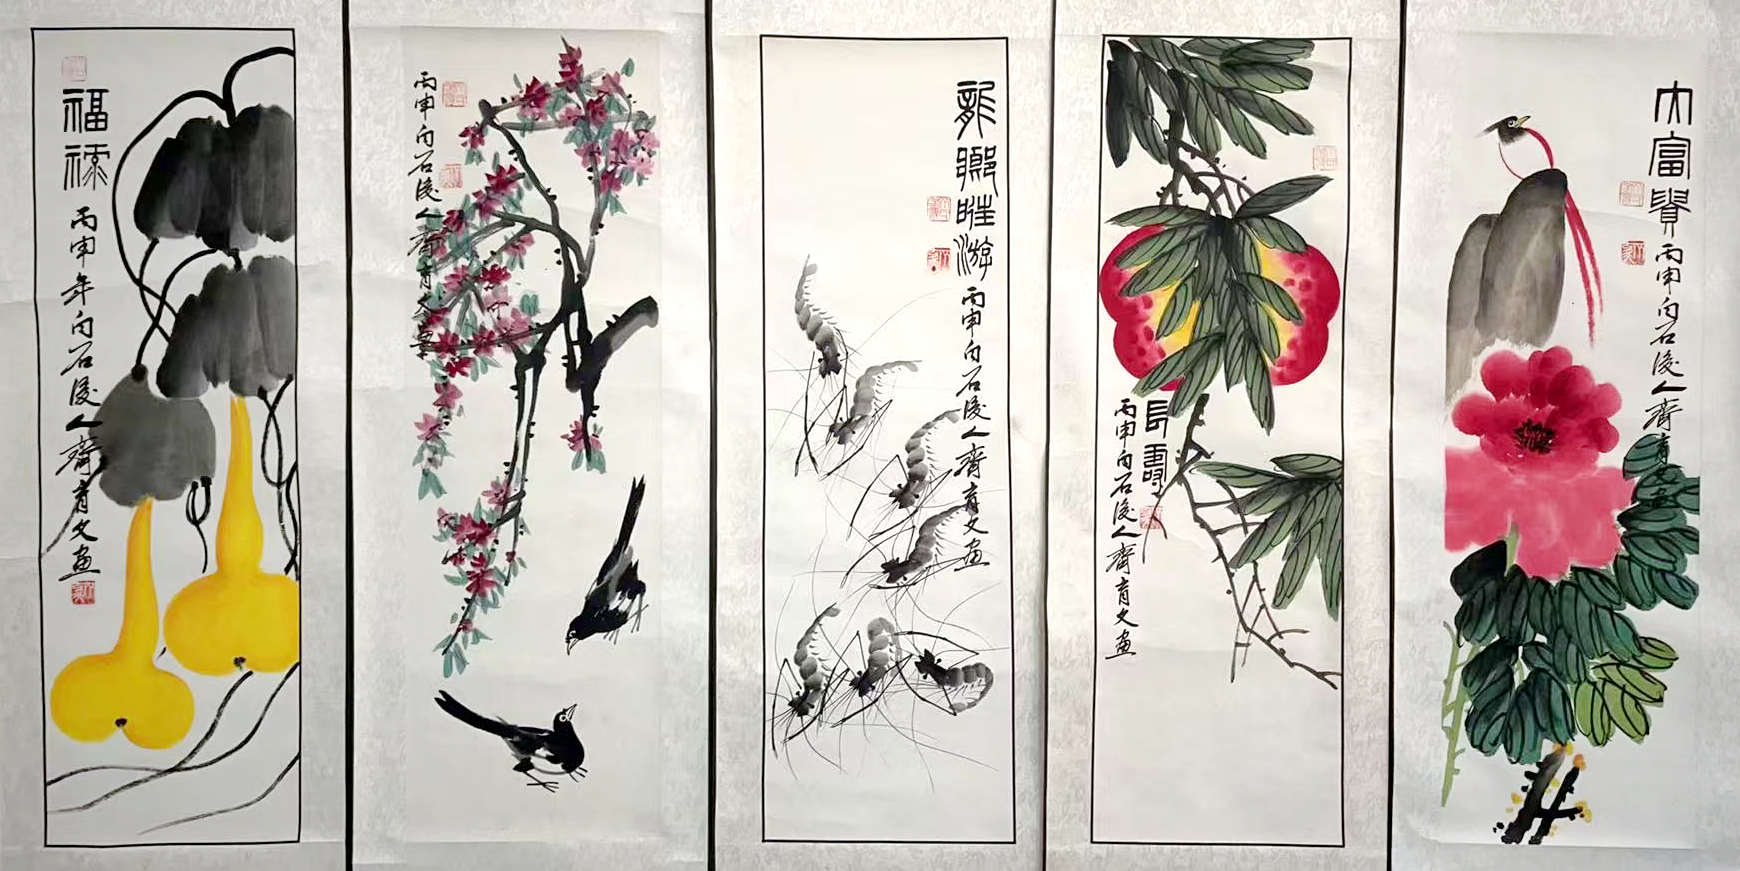 福祿
丙申年白石後人齊育文畫
丙申白石後人齊育文畫
龍 游
丙申白石後人齊育文畫
長壽
丙申白石後人齊育文畫
大富貴
丙申白石後人齊育